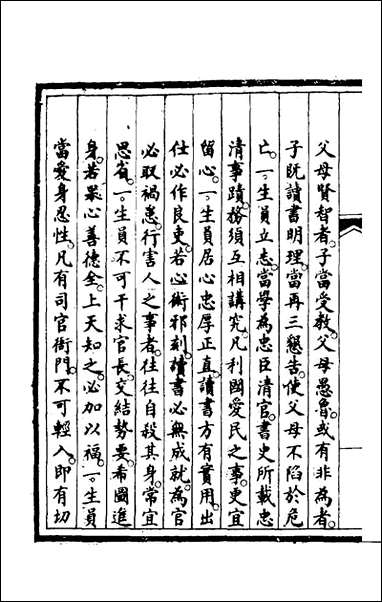 父母賢智者。子當受教。父母愚魯。或有非為者。
子既讀書明理。當再三懇告。使父母不陷於危
亡。一。生員立志。當學為忠臣清官。書史所載忠
清事蹟。務須互相講究。凡利國愛民之事。更宜
留心。一。生員居心忠厚正直。讀書方有實用。出
仕必作良吏。若心術邪刻。讀書必無成就。為官
必取禍患。行害人之事者。往往自殺其身。常宜
思省。一。生員不可干求官長。交結勢要。希圖進
身。若果心善德全。上天知之。必加以福。一。生員
當愛身忍性。凡有司官衙門。不可輕入。即有切